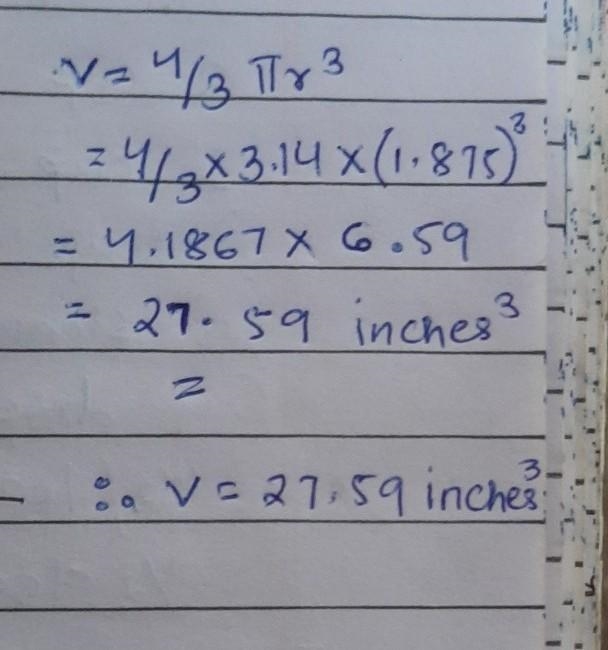 V = 4/3 πr³
= 4/3 × 3.14 × (1.875)³
= 4.1867 × 6.59
= 27.59 inches³
=
∴ V = 27.59 inches³